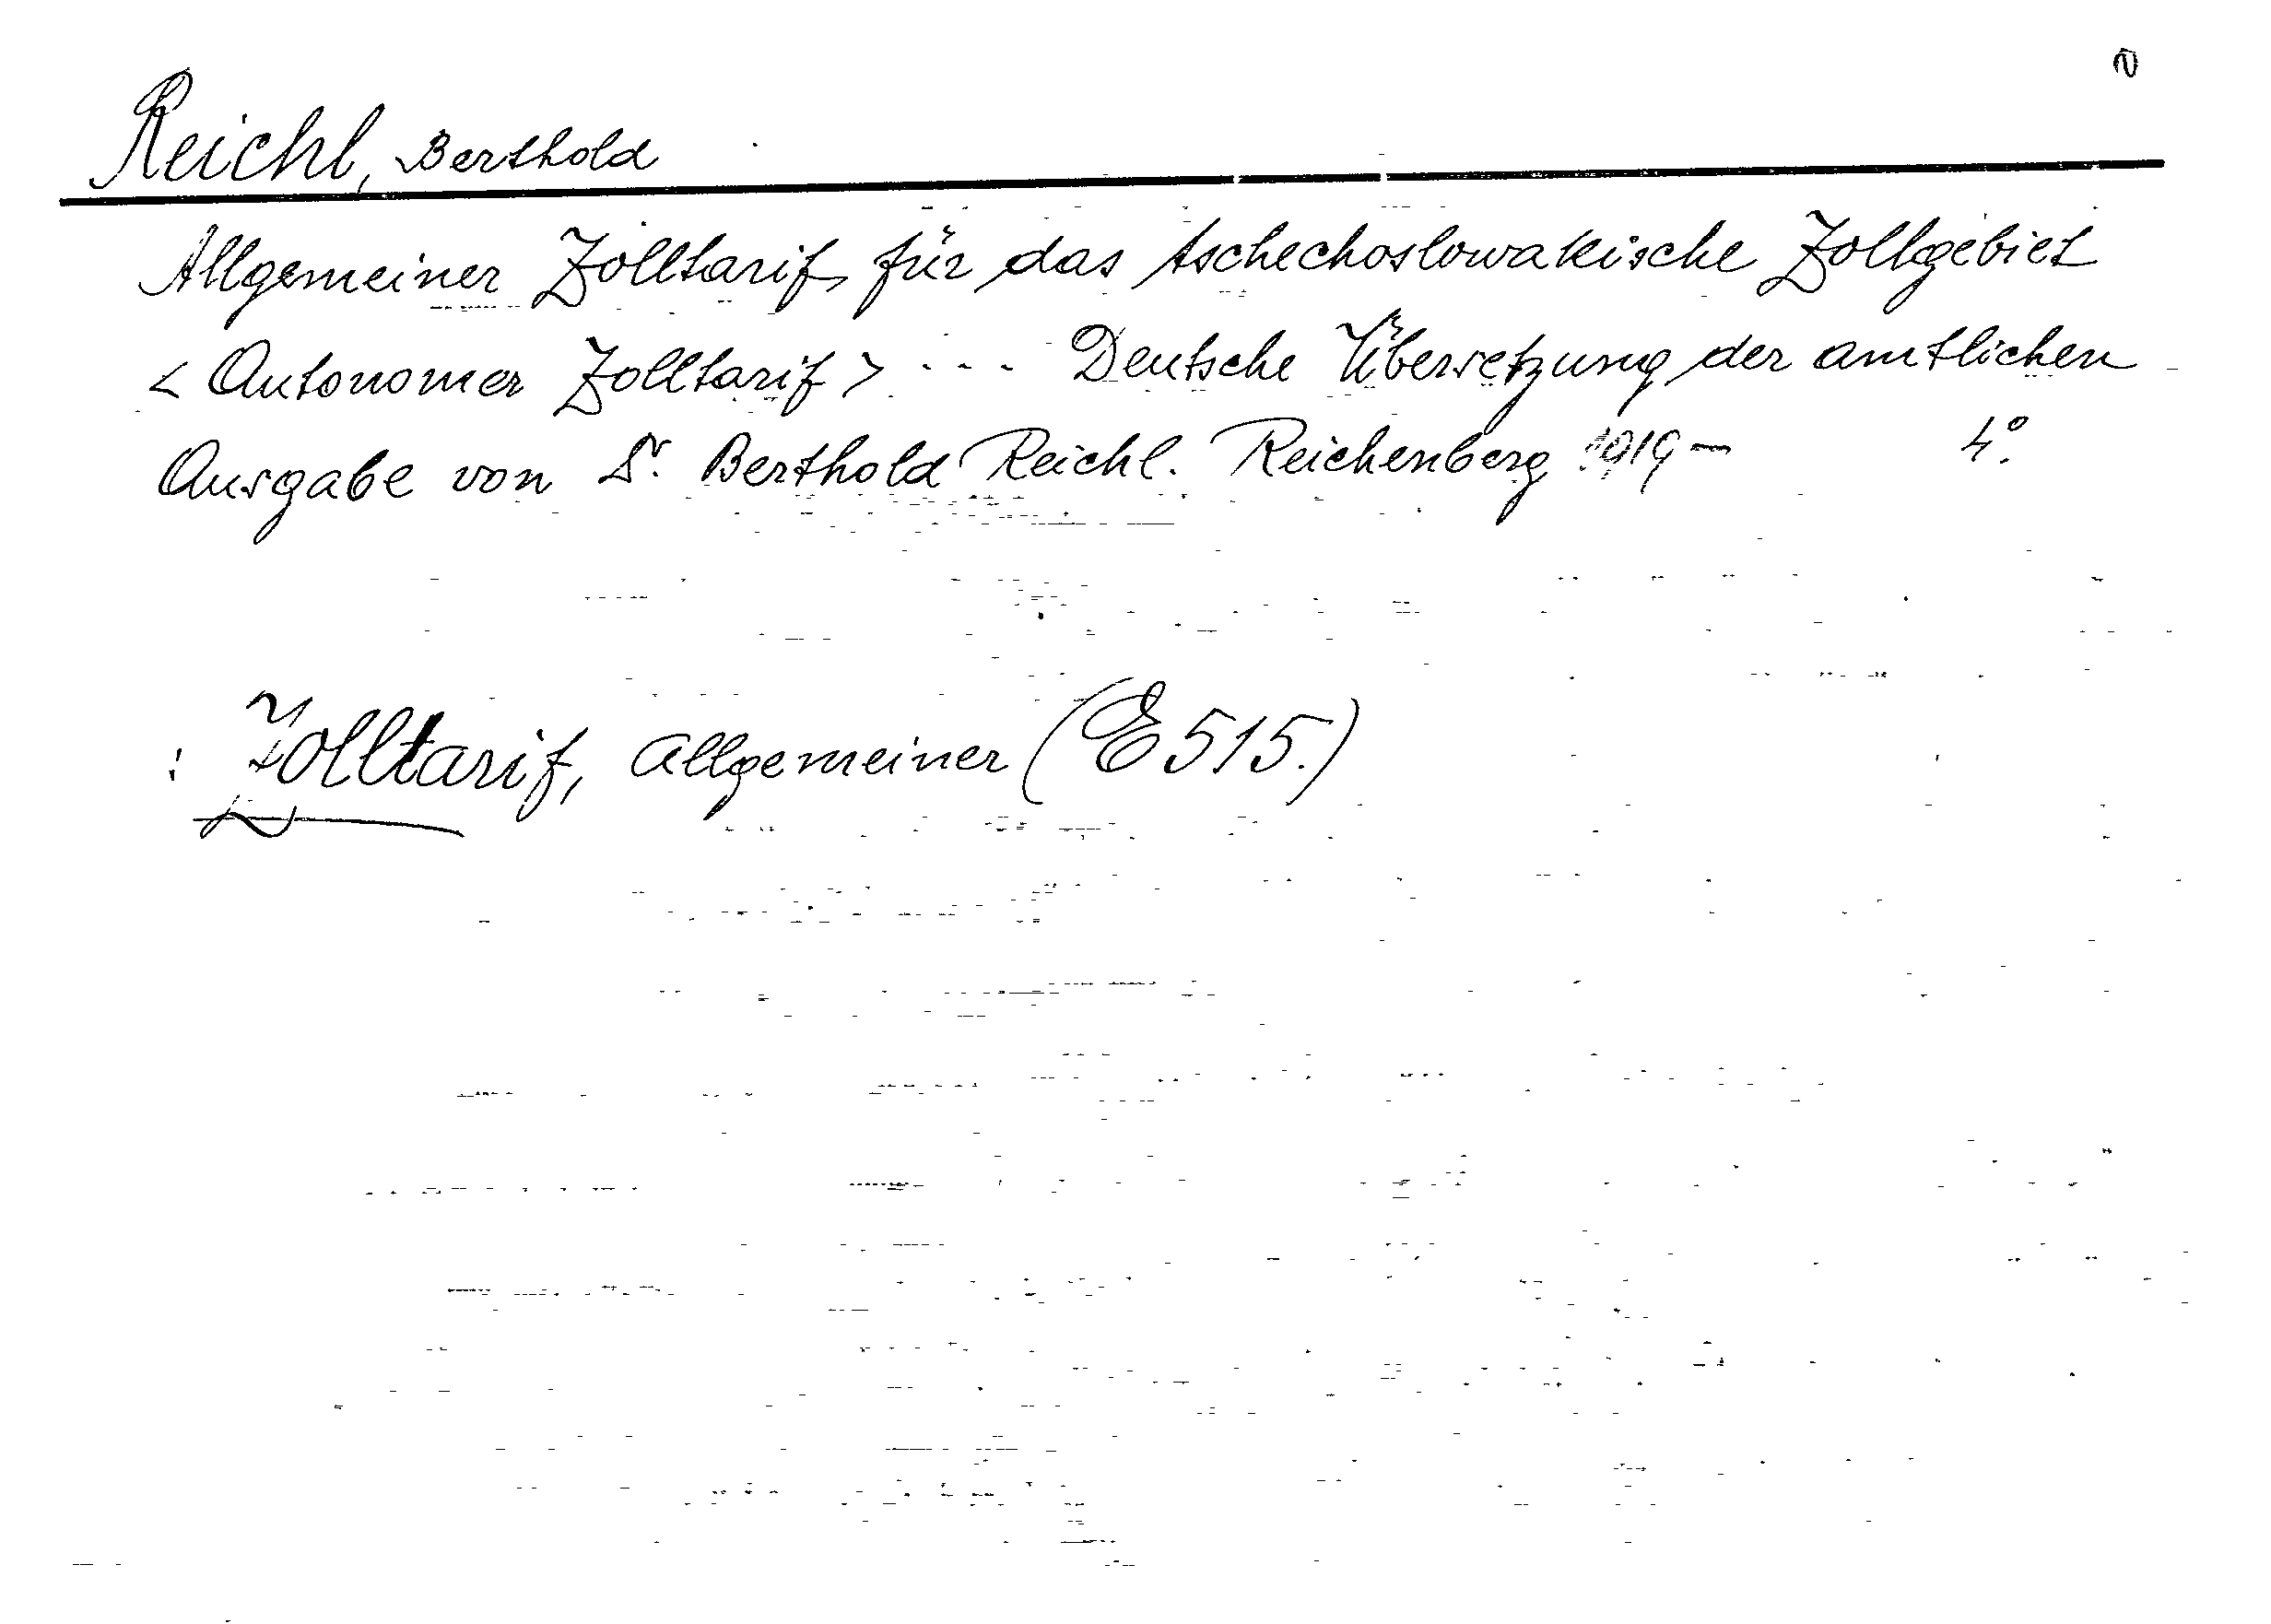 Reichl, Berthold
Allgemeiner Zolltarif für das tschechoslowakische Zollgebiet
< Autonomer Zolltarif > - - - Deutsche Übersetzung der amtlichen
Ausgabe von Dr. Berthold Reichl. Reichenberg 1919 — 4°.
: Zolltarif, allgemeiner (E 515.)